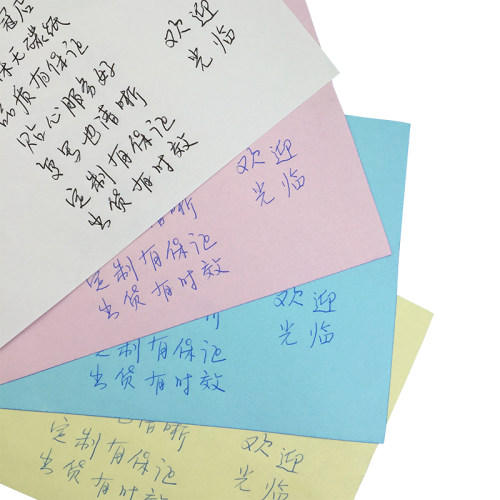 冠店
体无碳纸
品质有保证
贴心服务好
复写也清晰
定制有保证
出货有时效
欢迎
光临
清晰
定制有保证
出货有时效
欢迎
光临
晰
定制有保证
出货有时效
欢迎
光临
也清晰
定制有保证
出货有时效
欢迎
光临